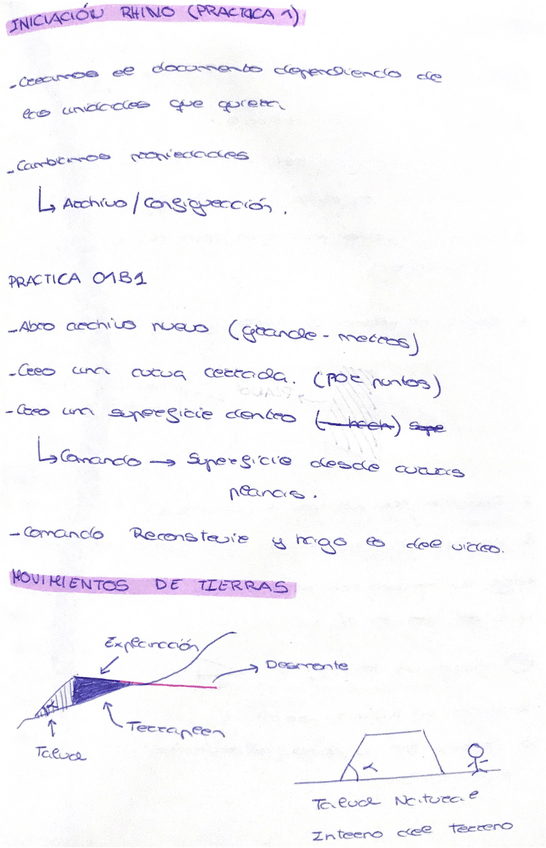 INICIACIÓN RHINO (PRACTICA 1)
- Creamos el documento dependiendo de
las unidades que quiera
- Cambiamos propiedades
↳ Archivo/Configuración.
PRACTICA 01B1
- Abro archivo nuevo (grande - metros)
- Creo una curva cerrada. (por puntos)
- Creo un superficie dentro
↳ Comando → Superficie desde curvas
planas.
- Comando Reconstruir y hago lo del video.
MOVIMIENTOS DE TIERRAS
Explanación
Desmonte
Terraplen
Talud
α
Talud Natural
Interno del terreno